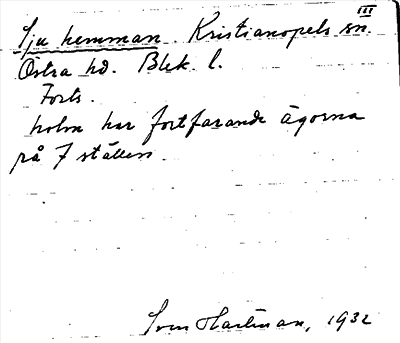 III
Sju hemman. Kristianopels sn.
Östra hd. Blek. l.
Forts.
holm har fortfarande ägorna
på 7 ställen.
Sven Hartman, 1932